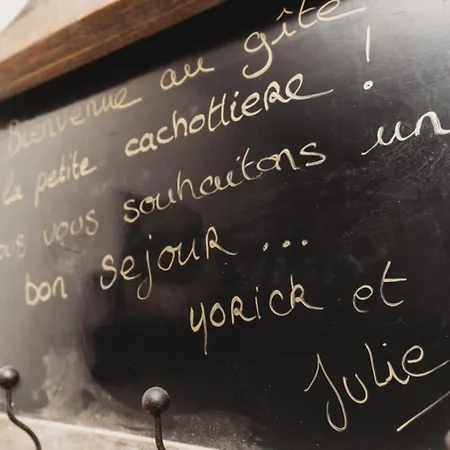 Bienvenue au gîte
la petite cachottiere !
nous vous souhaitons un
bon sejour ...
yorick et
Julie